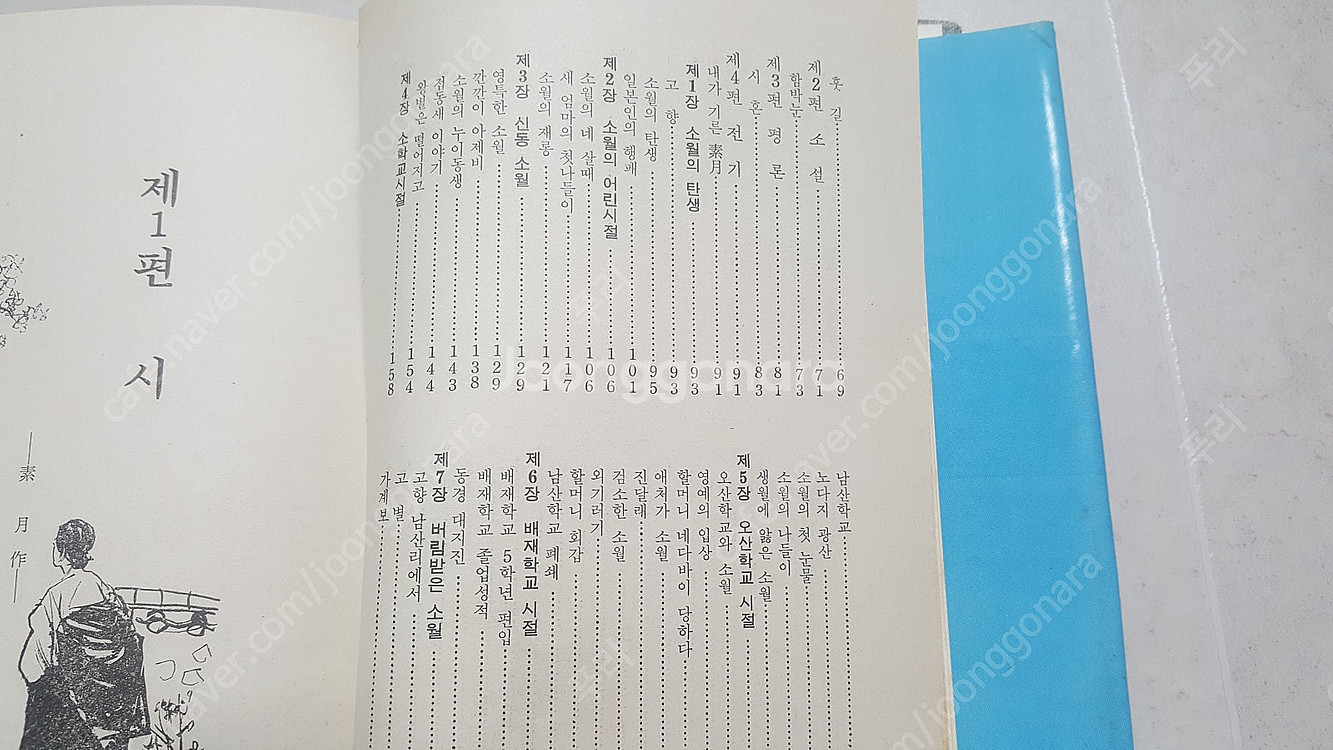 훗 길 69
제2편 소 설 71
함박눈 73
제3편 평 론 81
시 혼 83
제4편 전 기 91
내가 기른 素月 91
제1장 소월의 탄생 93
고 향 93
소월의 탄생 95
일본인의 행패 101
제2장 소월의 어린시절 106
소월의 네 살때 106
새 엄마의 첫나들이 117
소월의 재롱 121
제3장 신동 소월 129
영특한 소월 129
깐깐이 아제비 138
소월의 누이동생 143
접동새 이야기 144
왕별은 떨어지고 154
제4장 소학교시절 158
남산학교
노다지 광산
소월의 첫 눈물
소월의 나들이
생월에 앓은 소월
제5장 오산학교 시절
오산학교와 소월
영예의 입상
할머니 네다바이 당하다
애처가 소월
진달래
검소한 소월
외기러기
할머니 회갑
남산학교 폐쇄
제6장 배재학교 시절
배재학교 5학년 편입
배재학교 졸업성적
동경 대지진
제7장 버림받은 소월
고향 남산리에서
고 별
가계보
제1편 시
素月作
Joonggonara
cafe.naver.com/joonggonara
푸리